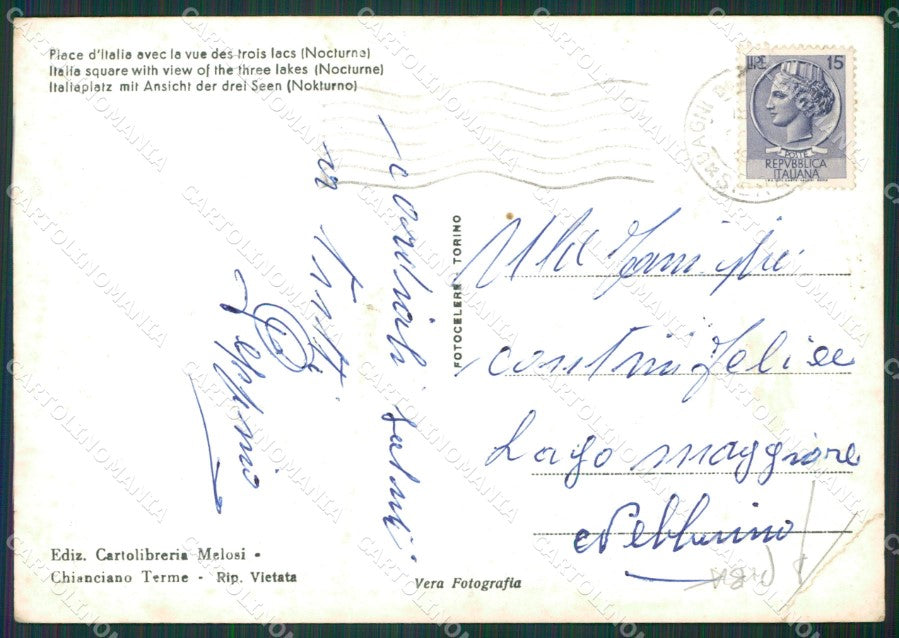 Place d'Italia avec la vue des trois lacs (Nocturne)
Italia square with view of the three lakes (Nocturne)
Italiaplatz mit Ansicht der drei Seen (Nokturno)
LIRE 15
POSTE
REPVBBLICA
ITALIANA
cordiali saluti
a tutti
Peppino
FOTOCELERE - TORINO
Alla Famiglia
contini felice
Lago maggiore
Nebbiuno
Ediz. Cartolibreria Melosi -
Chianciano Terme - Rip. Vietata
Vera Fotografia
CARTOLINOMANIA